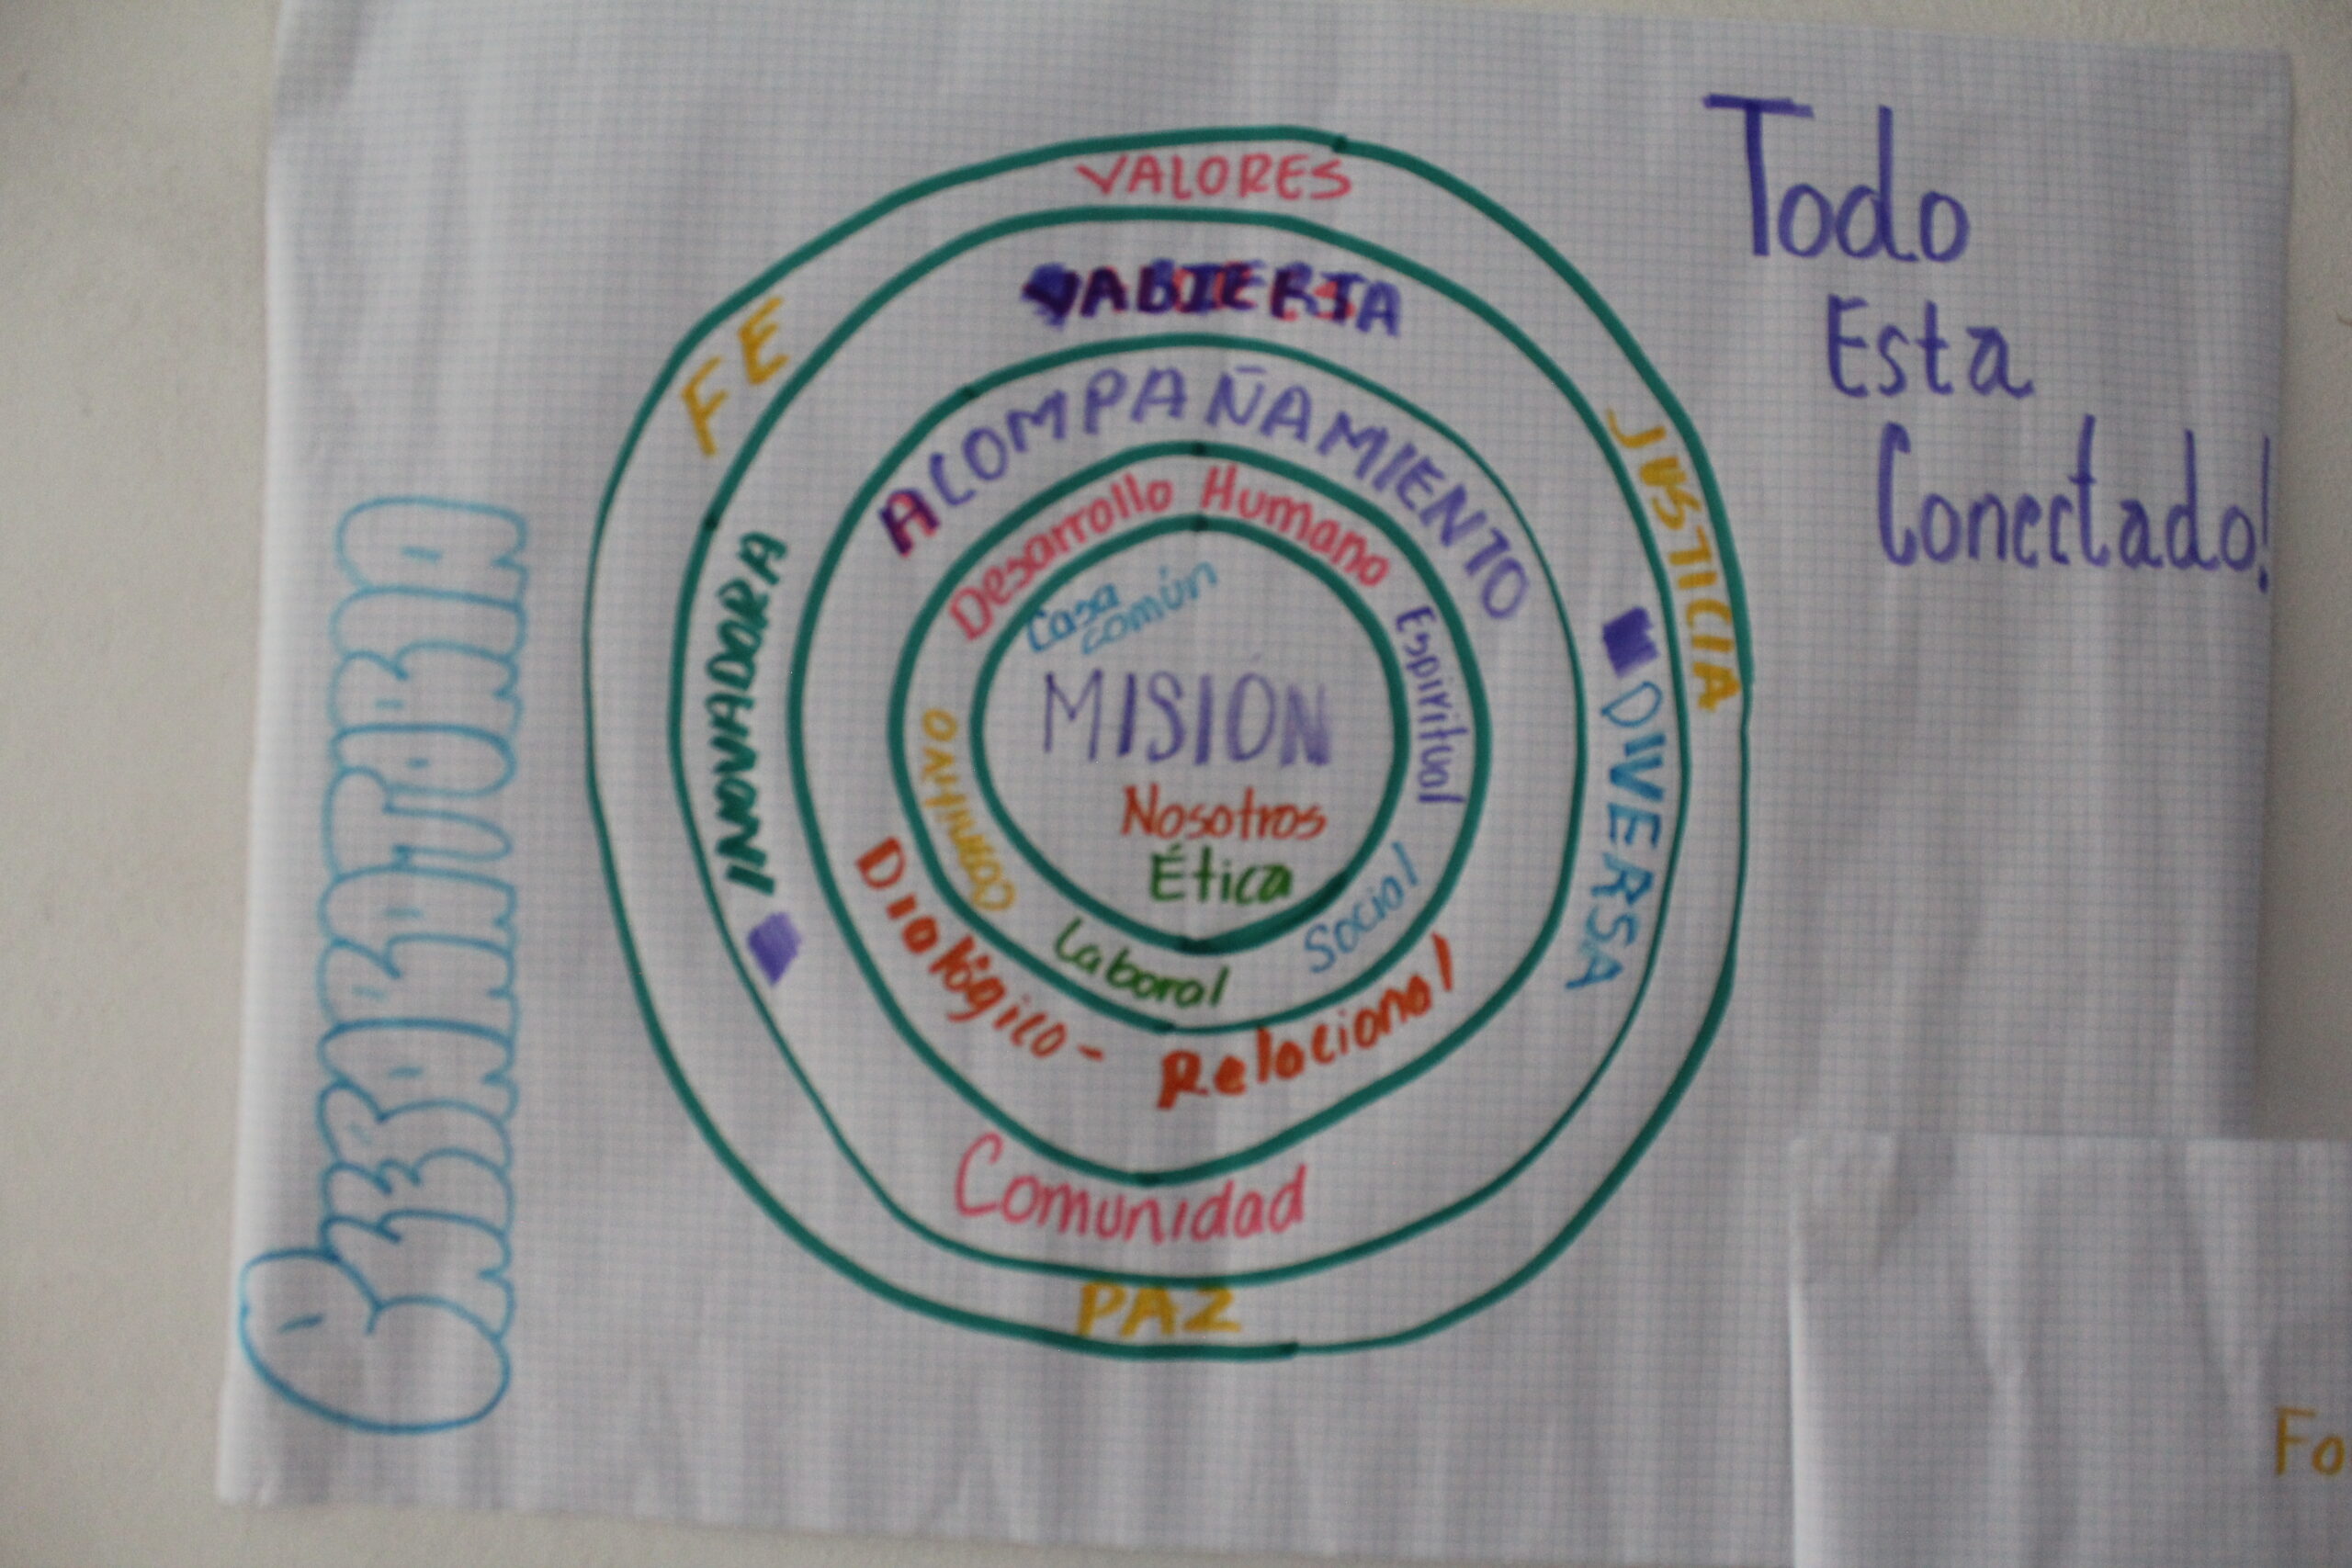 Todo
Esta
Conectado!
VALORES
FE
JUSTICIA
PAZ
ABIERTA
INOVADORA
DIVERSA
Comunidad
ACOMPAÑAMIENTO
Dialógico - Relacional
Desarrollo Humano
Espiritual
Social
Laboral
Casa
común
MISIÓN
Nosotros
Ética
Fo